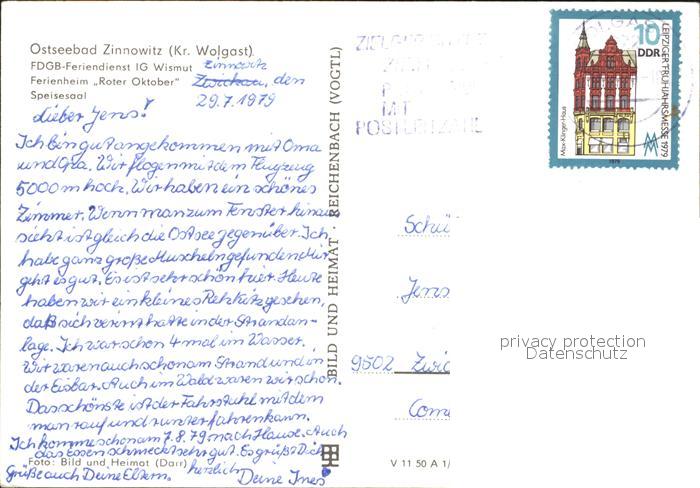 Ostseebad Zinnowitz (Kr. Wolgast)
FDGB-Feriendienst IG Wismut Zinnowitz
Ferienheim „Roter Oktober" Zwickau, den
Speisesaal 29.7.1979
Lieber Jens!
Ich bin gut angekommen mit Oma
und Opa. Wir flogen mit dem Flugzeug
5000 m hoch. Wir haben ein schönes
Zimmer. Wenn man zum Fenster hinaus
sieht ist gleich die Ostsee gegenüber. Ich
habe ganz große Muscheln gefunden. Mir
geht es gut. Es ist sehr schön hier. Heute
haben wir ein kleines Rehkitz gesehen,
daß sich verirrt hatte in der Strandan-
lage. Ich war schon 4 mal im Wasser.
Wir waren auch schon am Strand und in
der Eisbar. Auch im Wald waren wir schon.
Das schönste ist der Fahrstuhl mit dem
man rauf und runter fahren kann.
Ich komme schon am 7.8.79 nach Hause. Auch
das Essen schmeckt sehr gut. Es grüßt Dich
Grüße auch Deine Eltern. herzlich
Deine Ines
Foto: Bild und Heimat (Darr)
BILD UND HEIMAT · REICHENBACH (VOGTL)
V 11 50 A 1/
MIT
POSTLEITZAHL
10
DDR
LEIPZIGER FRÜHJAHRSMESSE 1979
Max-Klinger-Haus
1979
Schü
Jens
9502 Zwic
privacy protection
Datenschutz